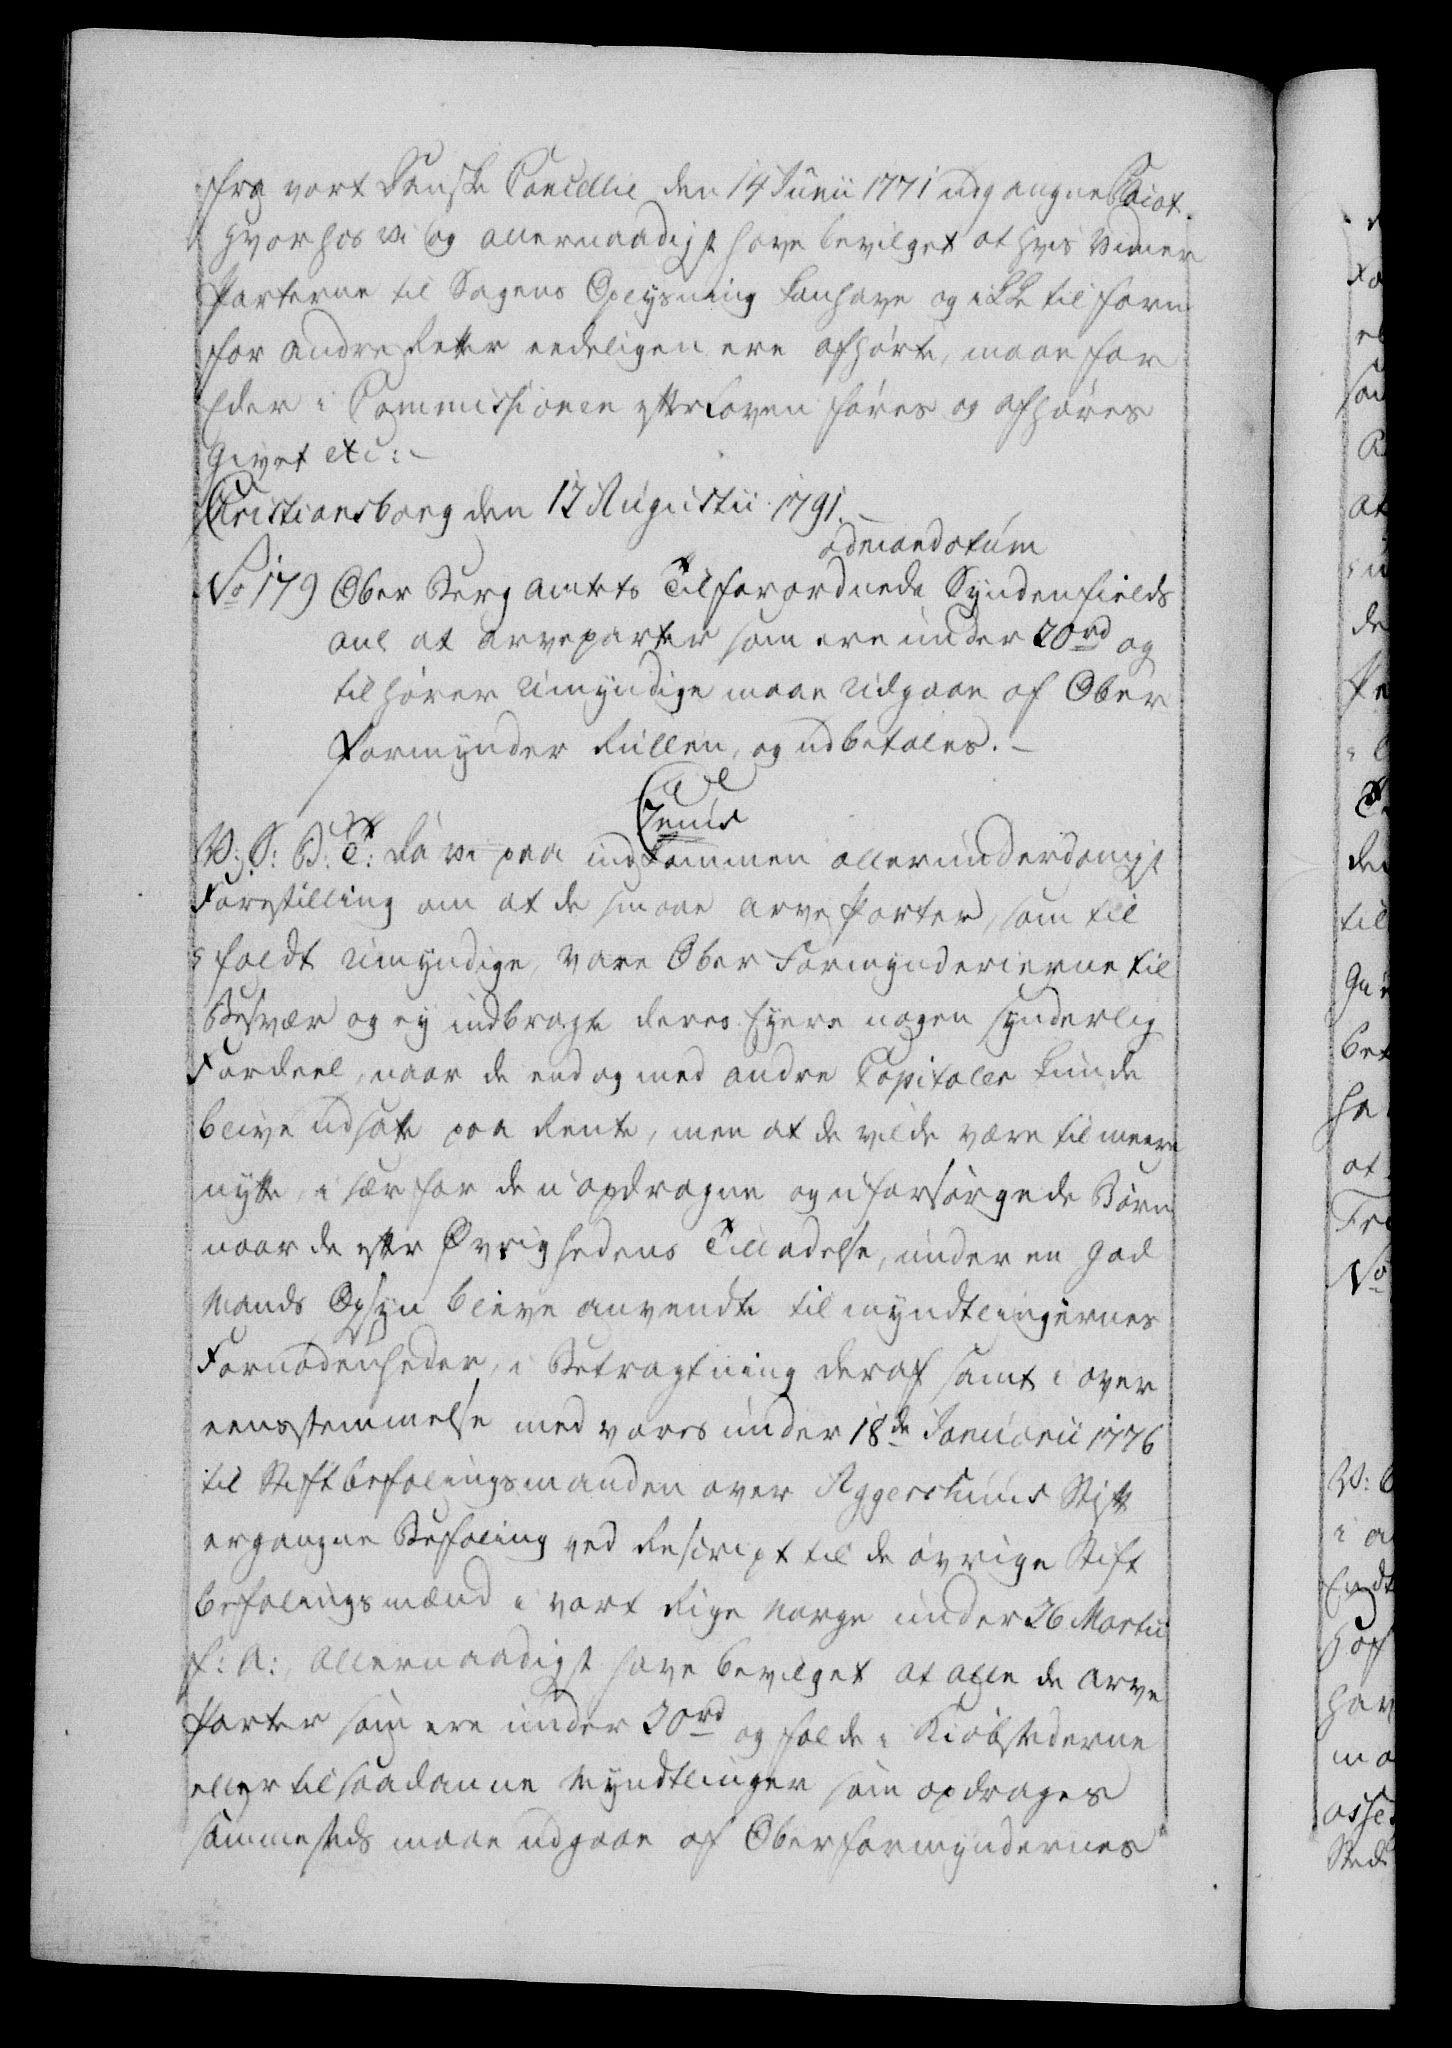 fra vort Danske Cancellie den 14 Junii 1771 udgangne Placat.
hvorhos vi og allernaadigst have bevilget at hvis Vidner
Parterne til Sagens Oplysning kan have og ikke tilforn
for andre Retter eedeligen ere afhørte, maae for
Eder i Commissionen efter Loven føres og afhøres
Givet etc: –
Christiansborg den 12 Augustii 1791. –
ad mandatum
No 179 Ober Berg Amtets Tilforordnede Syndenfields
anl at arveparter som ere under 20rd og
tilhører Umyndige maae Udgaae af Ober
Formynder Rullen, og udbetales. –
V: G: B: T: Da vi paa indkommen allerunderdanigst
Forestilling om at de smaae arve Parter, som til
faldt Umyndige, vare Ober Formynderierne til
Besvær og ey indbragte deres Eyere nogen synderlig
Fordeel, naar de end og med andre Capitaler kunde
blive udsatte paa Rente, men at de vilde være til meere
nytte, i sær for de uopdragne og uforsørgede Børn
naar de efter Øvrighedens Tilladelse, under en god
Mands Opsyn bleve anvendte til myndtlingernes
Fornødenheder, i Betragtning deraf samt i over
eensstemmelse med vores under 18de Januarii 1776
til Stiftbefalingsmanden over Aggershuus Stift
ergangne Befaling ved Rescript til de øvrige Stift
befalingsmænd i vort Rige Norge under 26 Martii
s: A:, allernaadigst have bevilget at alle de Arve
Parter som ere under 20rd og falde i Kiøbstæderne
eller til saadanne Myndtlinger som opdrages
sammesteds maae udgaae af Oberformyndernes